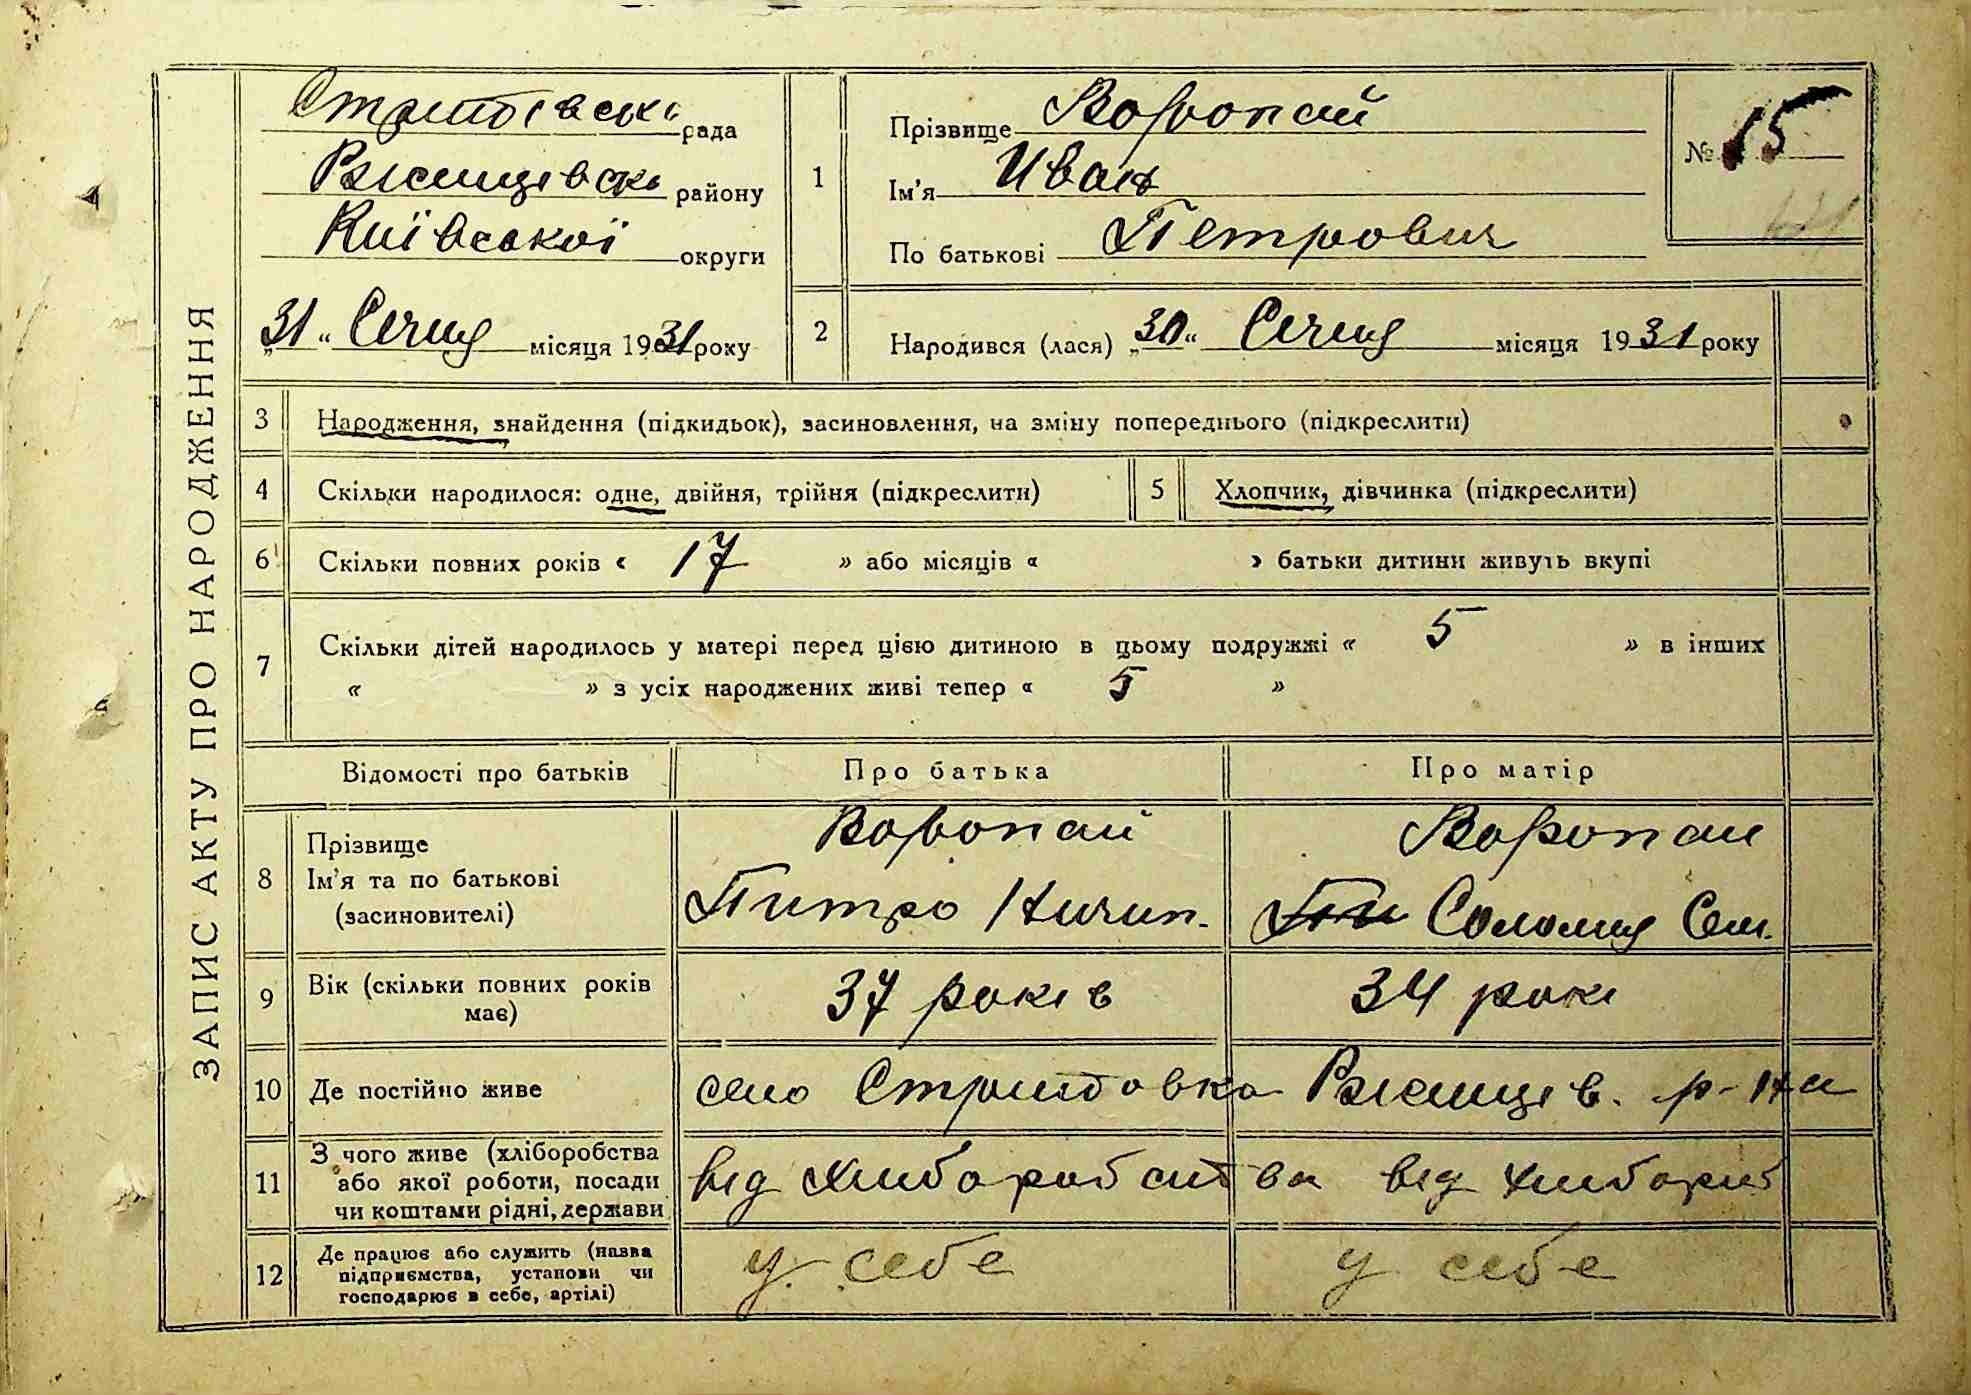 ЗАПИС АКТУ ПРО НАРОДЖЕННЯ
Стритівськ рада
Ржищівськ району
Київської округи
„31“ Січня місяця 1931 року
1
Прізвище Воропай
Ім'я Иван
По батькові Петрович
№ 15
2
Народився (лася) „30“ Січня місяця 1931 року
3 Народження, знайдення (підкидьок), засиновлення, на зміну попереднього (підкреслити)
4 Скільки народилося: одне, двійня, трійня (підкреслити)
5 Хлопчик, дівчинка (підкреслити)
6 Скільки повних років « 17 » або місяців « » батьки дитини живуть вкупі
7 Скільки дітей народилось у матері перед цією дитиною в цьому подружжі « 5 » в інших
« » з усіх народжених живі тепер « 5 »
Відомості про батьків Про батька Про матір
8
Прізвище
Ім'я та по батькові
(засиновителі)
Воропай
Питро Ничип.
Воропай
Соломия Сем.
9
Вік (скільки повних років
має)
37 років
34 рокі
10 Де постійно живе
село Стритовка Ржищів. р-на
11
З чого живе (хліборобства
або якої роботи, посади
чи коштами рідні, держави
від хлиборобства від хлибороб
12
Де працює або служить (назва
підприємства, установи чи
господарює в себе, артілі)
у себе
у себе